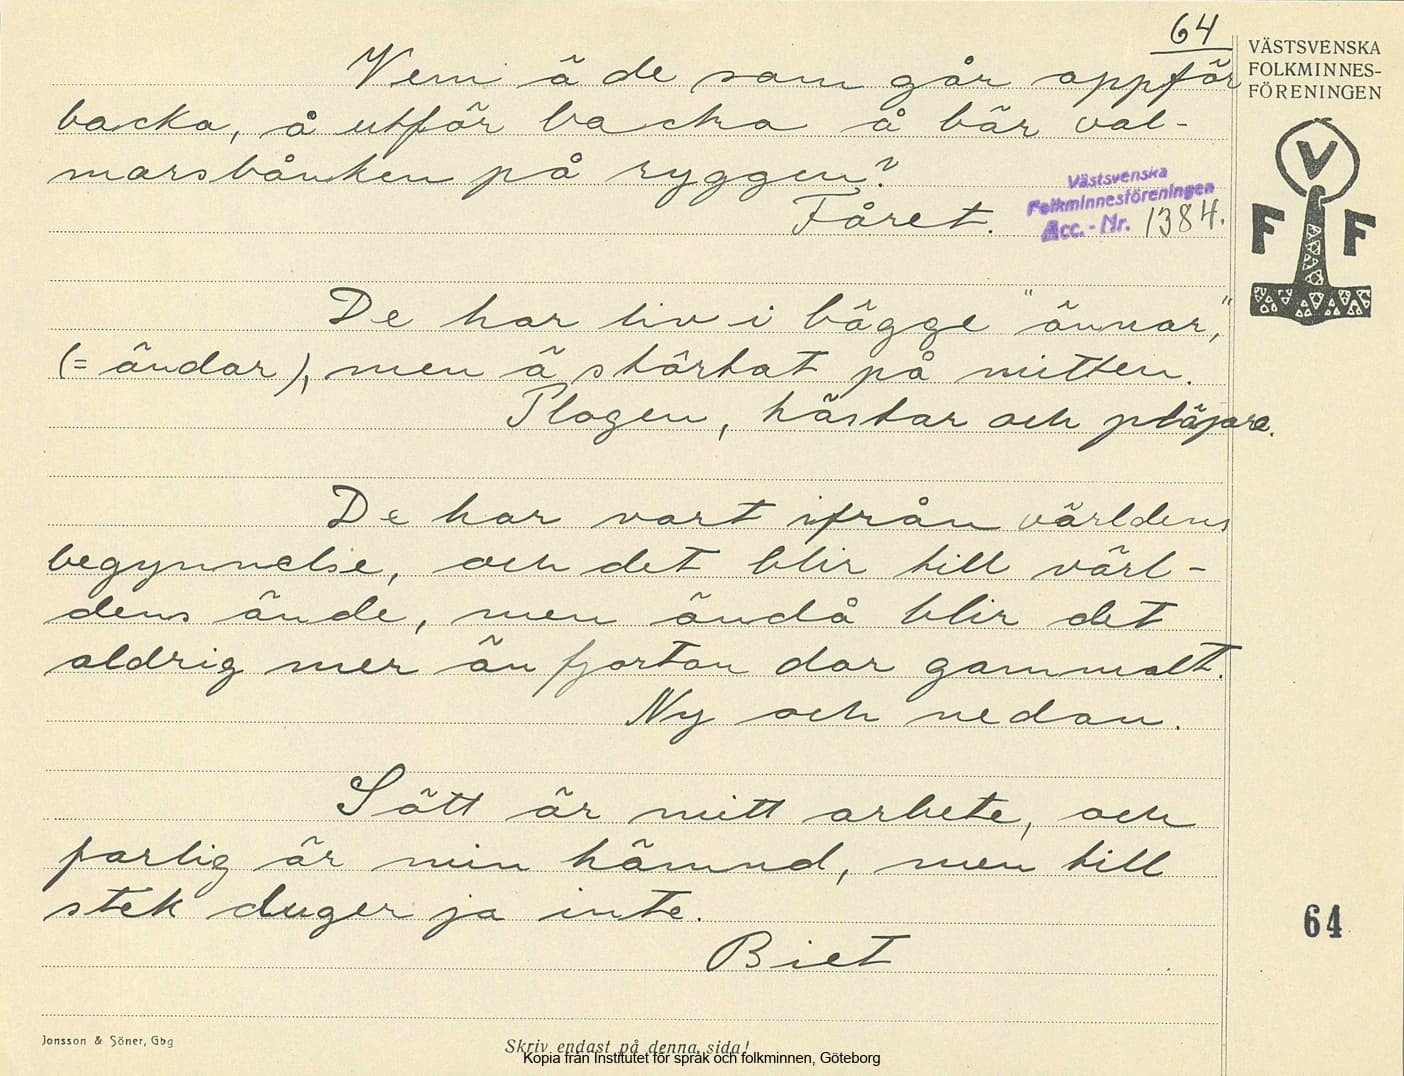 64
VÄSTSVENSKA
FOLKMINNES-
FÖRENINGEN
V
F F
Vem ä de som går oppför
backa, å utför backa å bär val-
marsbånken på ryggen?
Fåret.
Västsvenska
Folkminnesföreningen
Acc.-Nr. 1384.
De har liv i bägge "ännar,"
(= ändar), men ä stärkat på mitten.
Plogen, hästar och plöjare.
De har vart ifrån världens
begynnelse, och det blir till värl-
dens ände, men ändå blir det
aldrig mer än fjorton dar gammalt.
Ny och nedan.
Sött är mitt arbete, och
farlig är min hämnd, men till
stek duger ja inte.
Biet
64
Jonsson & Söner, Gbg
Skriv endast på denna sida!
Kopia från Institutet för språk och folkminnen, Göteborg